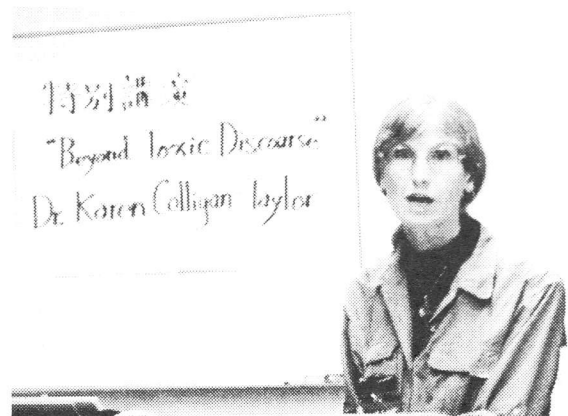 特別講演
"Beyond Toxic Discourse"
Dr. Karen Colligan Taylor